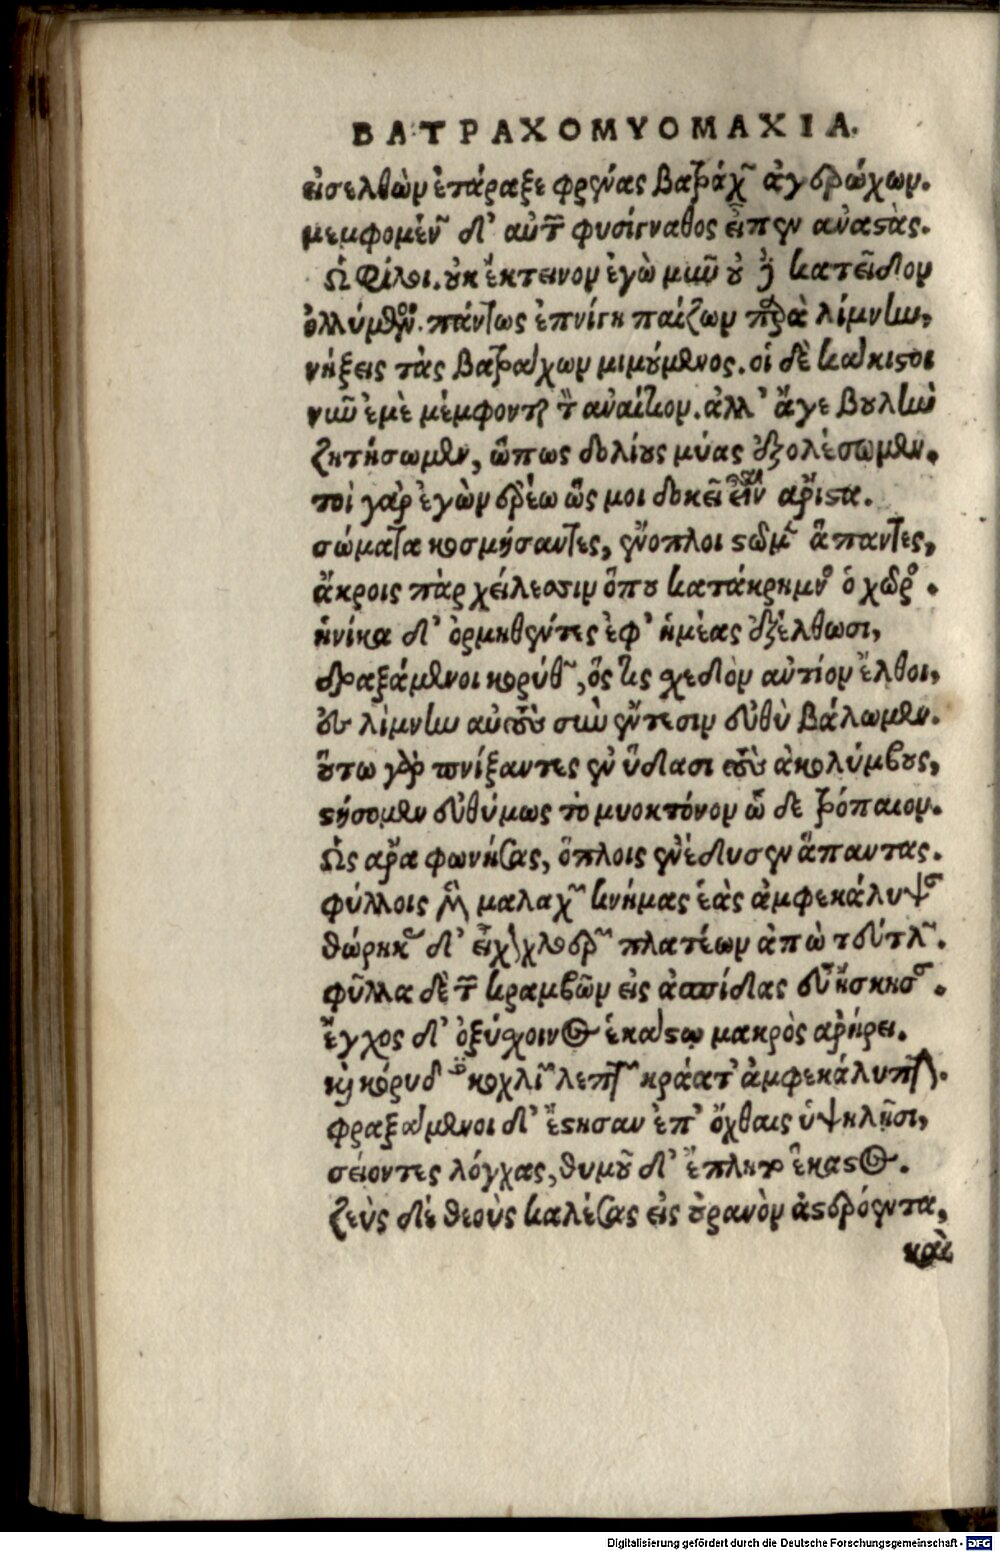 ΒΑΤΡΑΧΟΜΥΟΜΑΧΙΑ.
εἰσελθὼν ἐτάραξε φρένας βατράχων ἀγερώχων.
μεμφομένων δ' αὐτῶν φυσίγναθος εἶπεν ἀναστὰς.
Ὦ Φίλοι. οὐκ ἔκτεινον ἐγὼ μῦν οὐδὲ κατεῖδον
ὀλλύμενον. πάντως ἐπνίγη παίζων παρὰ λίμνην,
νήξεις τὰς βατράχων μιμούμενος. οἱ δὲ κάκιστοι
νῦν ἐμὲ μέμφονται τὸν ἀναίτιον. ἀλλ' ἄγε βουλὴν
ζητήσωμεν, ὅπως δολίους μύας ἐξολέσωμεν.
τοὶ γὰρ ἐγὼν ἐρέω ὥς μοι δοκεῖ εἶναι ἄριστα.
σώματα κοσμήσαντες, ἔνοπλοι στῶμεν ἅπαντες,
ἄκροις πὰρ χείλεσιν ὅπου κατάκρημνος ὁ χῶρος.
ἡνίκα δ' ὁρμηθέντες ἐφ' ἡμέας ἐξέλθωσι,
δραξάμενοι κορύθων, ὅς τις σχεδὸν ἀντίον ἔλθοι,
ἐς λίμνην αὐτοὺς σὺν ἔντεσιν εὐθὺ βάλωμεν.
οὕτω γὰρ πνίξαντες ἐν ὕδασι τοὺς ἀκολύμβους,
στήσομεν εὐθύμως τὸ μυοκτόνον ὧ δε τρόπαιον.
Ὣς ἄρα φωνήσας, ὅπλοις ἐνέδυσεν ἅπαντας.
φύλλοις μὲν μαλαχῶν κνήμας ἑὰς ἀμφεκάλυψαν
θώρηκας δ' εἶχον χλοερῶν πλατέων ἀπὸ τεύτλων.
φύλλα δὲ τῶν κραμβῶν εἰς ἀσπίδας εὖ ἤσκησαν.
ἔγχος δ' ὀξύσχοινος ἑκάστῳ μακρὸς ἀρήρει.
καὶ κόρυθες κοχλιῶν λεπτῶν κράατ' ἀμφεκάλυπτον.
φραξάμενοι δ' ἔστησαν ἐπ' ὄχθαις ὑψηλῇσι,
σείοντες λόγχας, θυμοῦ δ' ἔπλητο ἕκαστος.
ζεὺς δὲ θεοὺς καλέσας εἰς οὐρανὸν ἀστερόεντα,
καὶ
Digitalisierung gefördert durch die Deutsche Forschungsgemeinschaft - DFG